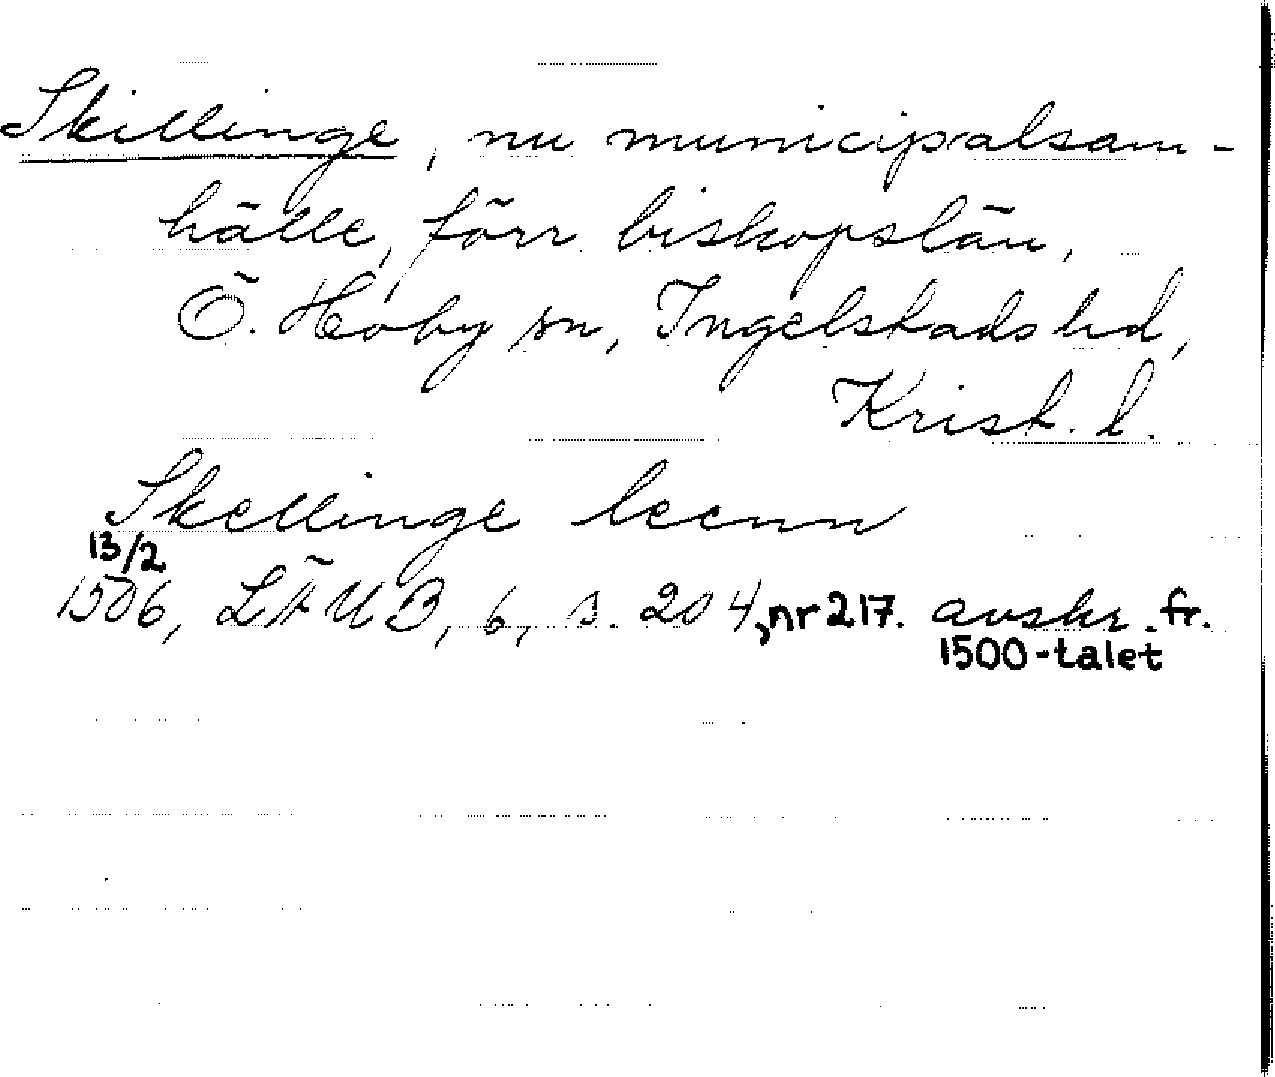 Skillinge, nu municipalsam-
hälle, förr biskopslän,
Ö. Hoby sn, Ingelstads hd,
Krist. l.
Skellinge leenn
13/2
1506, LÄUB, 6, s. 204, nr 217. avskr. fr.
1500-talet